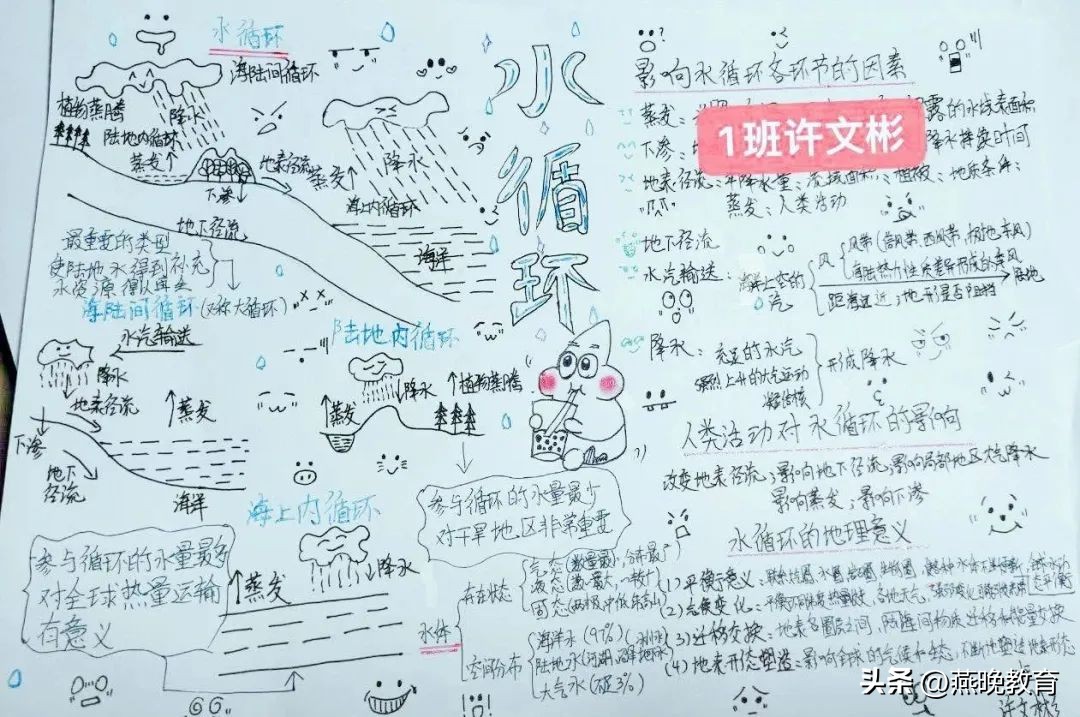 水循环
海陆间循环
植物蒸腾
降水
陆地内循环
蒸发
地表径流
下渗
地下径流
蒸发
降水
海上内循环
海洋
最重要的类型
使陆地水得到补充
水资源得以再生
海陆间循环(又称大循环)
水汽输送
降水
地表径流
蒸发
下渗
地下
径流
海洋
陆地内循环
降水
植物蒸腾
蒸发
参与循环的水量最少
对干旱地区非常重要
海上内循环
蒸发
降水
参与循环的水量最多
对全球热量运输
有意义
水循环
水体
存在状态
气态
液态
固态
空间分布
海洋水(97%)
陆地水
大气水
影响水循环各环节的因素
蒸发:
露的水域表面积
下渗:
降水持续时间
1班许文彬
地表径流:年降水量;流域面积;植被;地质条件;
蒸发;人类活动
地下径流
水汽输送:
海洋上空的
汽
风
风带(信风带、西风带、极地东风)
海陆热力性质差异形成的季风
距海远近;地形是否阻挡
陆地
降水:充足的水汽
上升的大气运动
凝结核
形成降水
人类活动对水循环的影响
改变地表径流;影响地下径流;影响局部地区大气降水
影响蒸发;影响下渗
水循环的地理意义
(1)平衡意义:
(2)气候变化:
(3)迁移交换:地表各圈层之间,海陆间物质迁移和能量交换
(4)地表形态塑造:影响全球的气候和生态,不断地塑造地表形态
许文彬
头条@燕晚教育